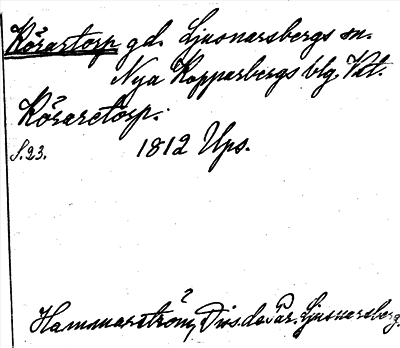 Körartorp gd. Ljusnarsbergs sn.
Nya Kopparbergs blg. Vstm.
Köraretorp.
S.23. 1812 Ups.
Hammarström, Diss. de Par. Ljusnarsberg.